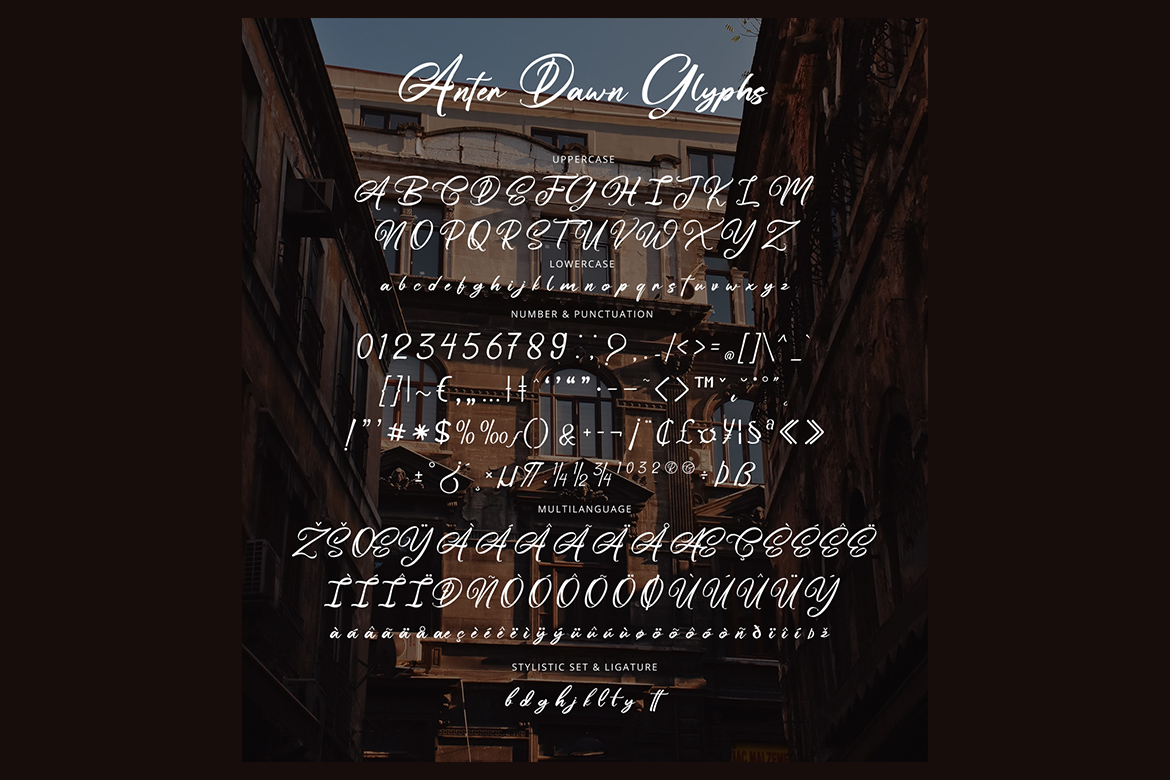 Anter Dawn Glyphs
UPPERCASE
A B C D E F G H I J K L M
N O P Q R S T U V W X Y Z
LOWERCASE
a b c d e f g h i j k l m n o p q r s t u v w x y z
NUMBER & PUNCTUATION
0 1 2 3 4 5 6 7 8 9 : ; ? , . - / < > = @ [ ] \ ^ _ `
[ ] | ~ € ‚ „ … † ‡ ˆ ‘ ’ “ ” • – — ˜ ‹ › ™
! " ' # * $ % ‰ ƒ ( ) & + - ¬ ¡ ¨ ₵ £ ¤ ¥ | § ª « »
± ° ¿ ´ ¸ × µ π · ¼ ½ ¾ ¹ ⁰ ³ ² ® © ÷ Þ ß
MULTILANGUAGE
Ž Š Œ Ÿ À Á Â Ã Ä Å Æ Ç È É Ê Ë
Ì Í Î Ï Ð Ñ Ò Ó Ô Õ Ö Ø Ù Ú Û Ü Ý
à á â ã ä å æ ç è é ê ë ì ÿ ý ü û ú ù ø ö õ ô ó ò ñ ð ï î í þ ž
STYLISTIC SET & LIGATURE
b d g h j k l t y tt